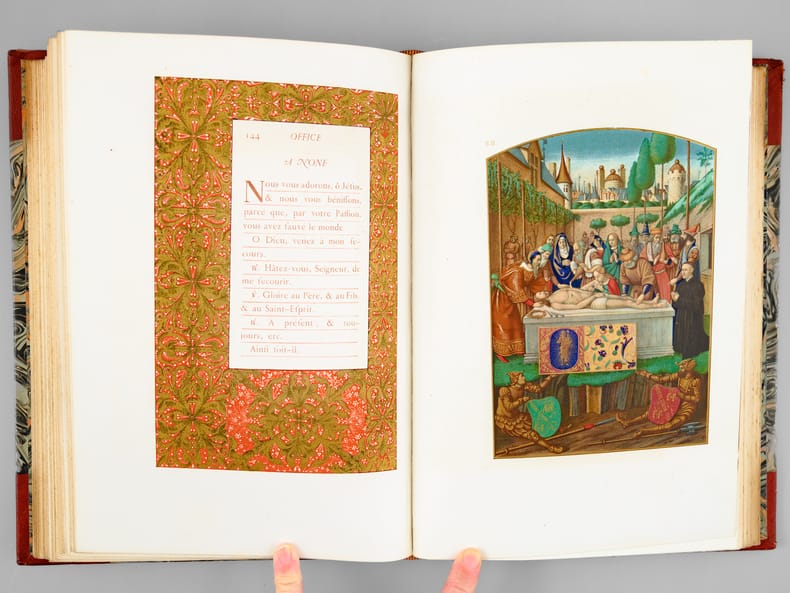 144 OFFICE
A NONE
Nous vous adorons, ô Jéſus,
& nous vous béniſſons,
parce que, par votre Paſſion,
vous avez ſauvé le monde
O Dieu, venez à mon ſe-
cours.
℟. Hâtez-vous, Seigneur, de
me ſecourir.
℣. Gloire au Père, & au Fils,
& au Saint-Eſprit.
℟. A préſent, & tou-
jours, etc.
Ainſi ſoit-il.